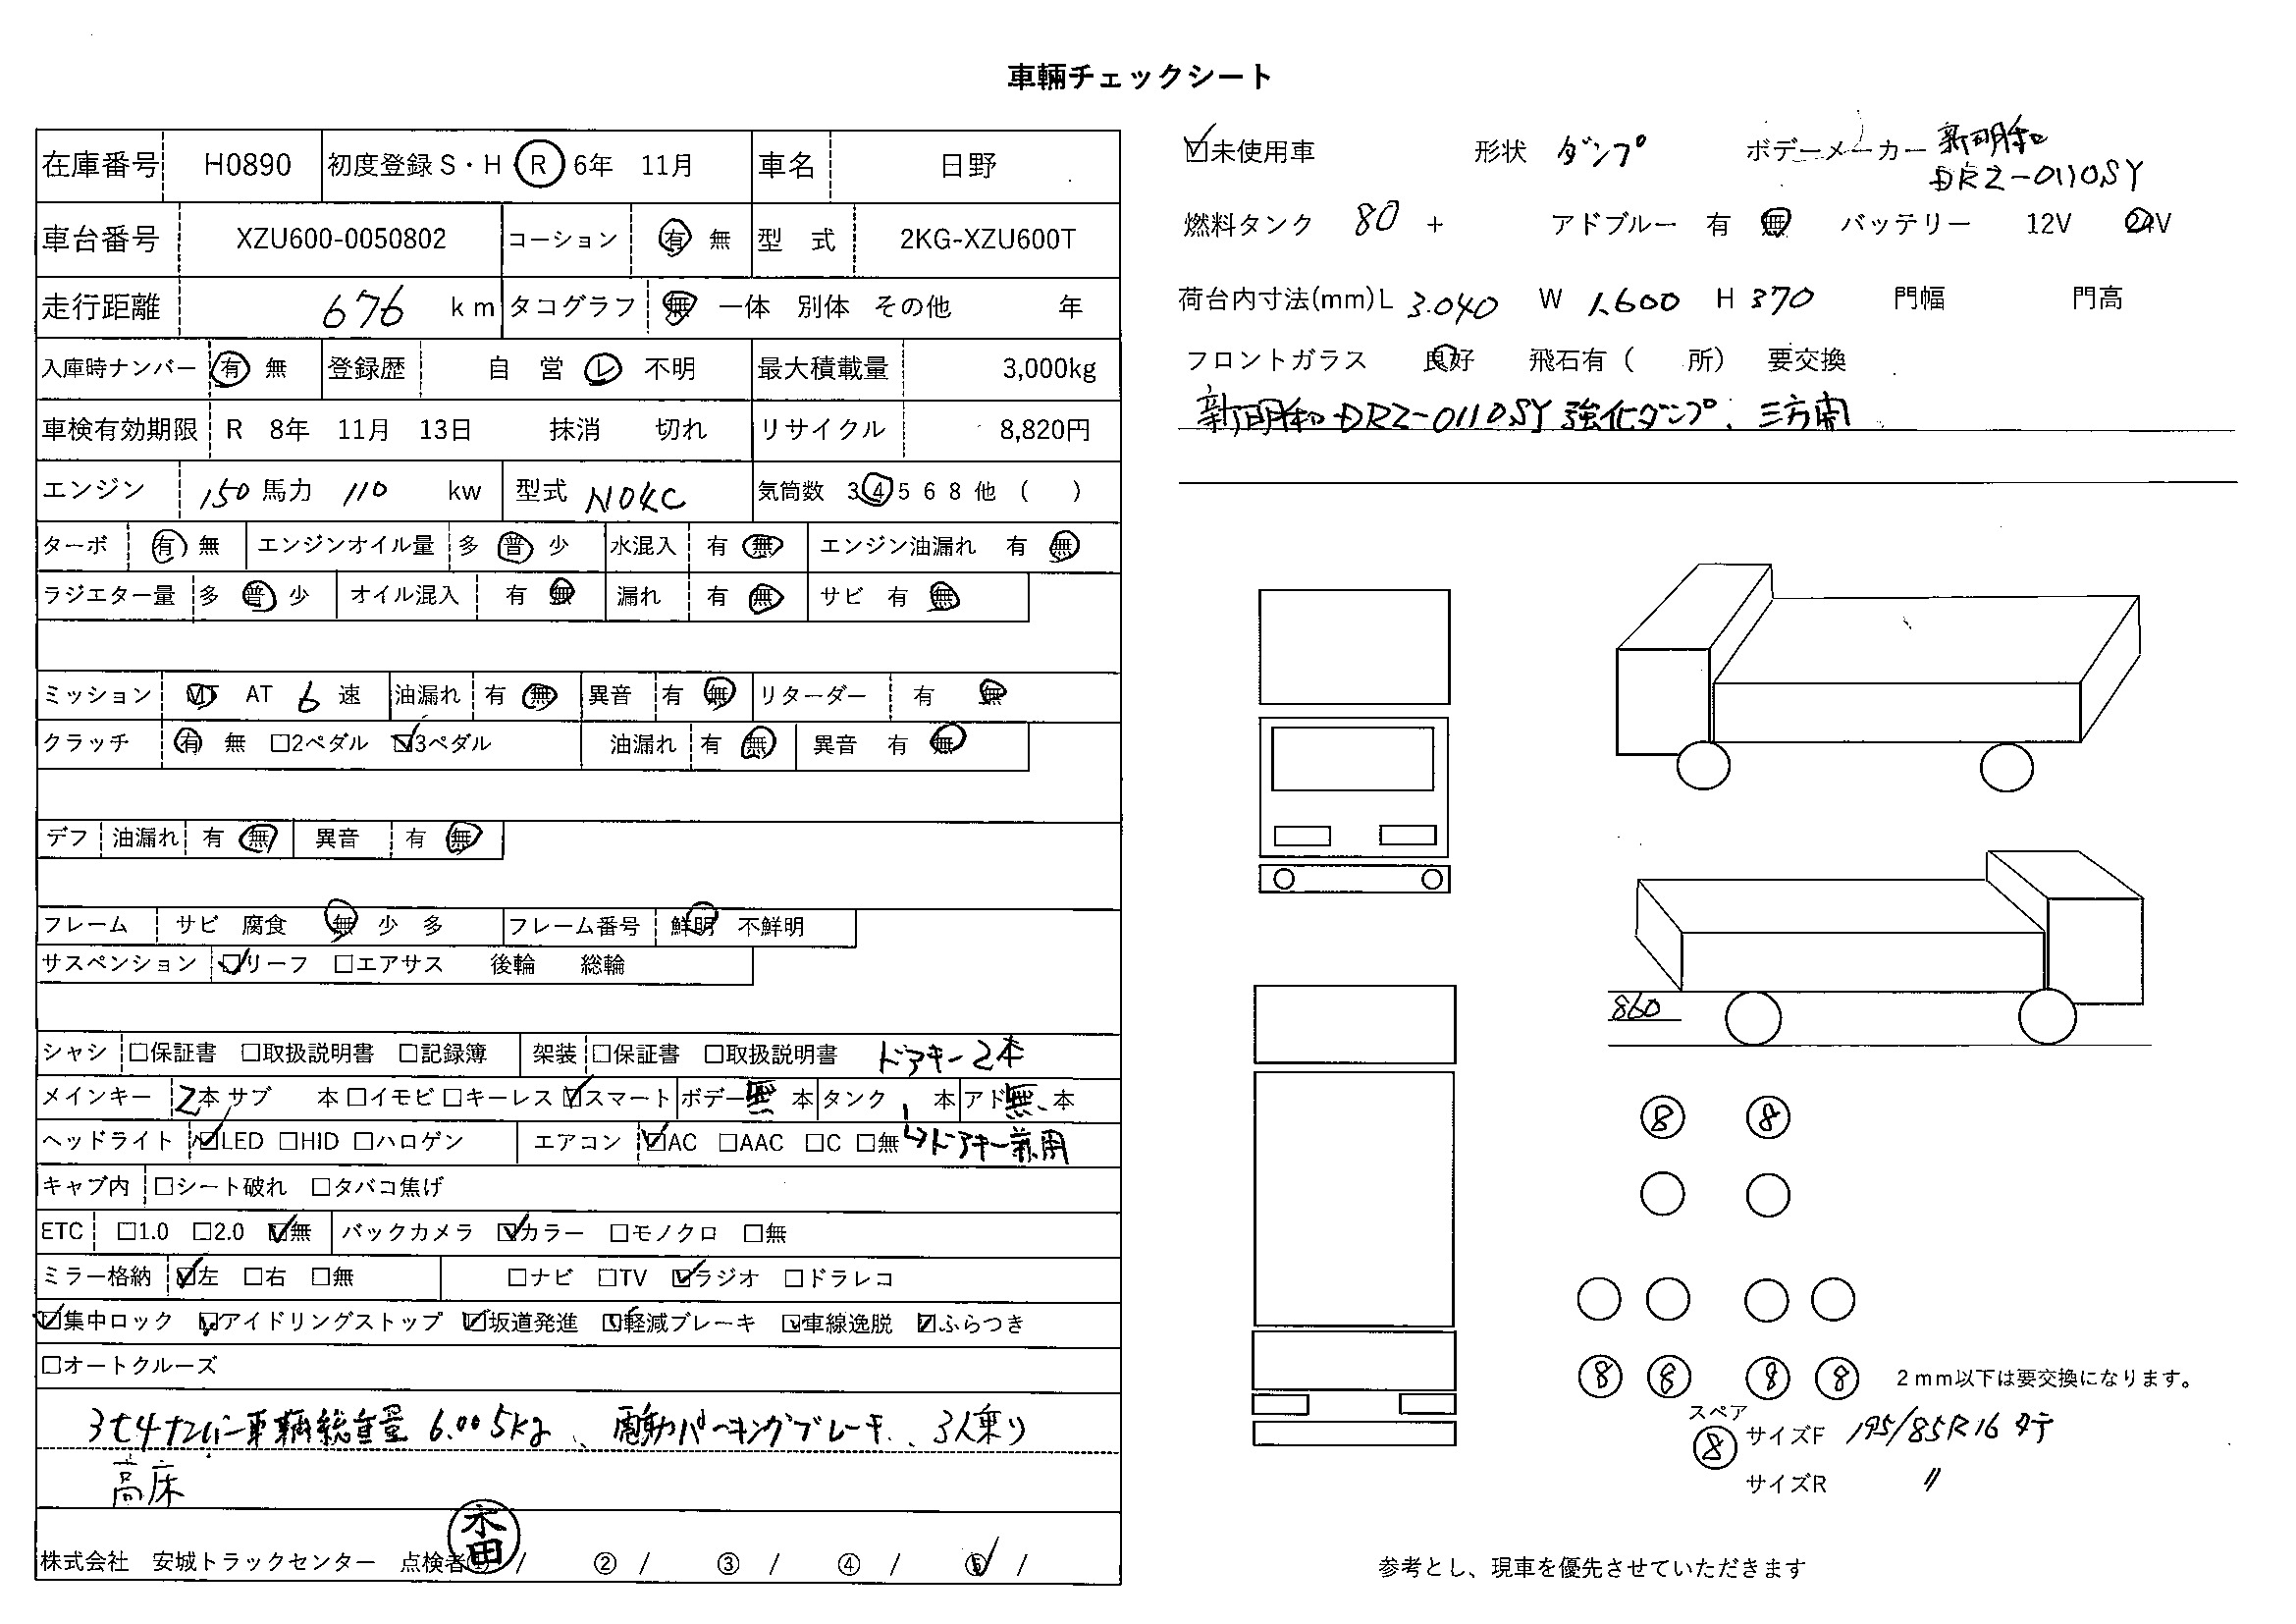 車輛チェックシート
在庫番号 H0890 初度登録 S・H・R 6年 11月 車名 日野
車台番号 XZU600-0050802 コーション 有 無 型 式 2KG-XZU600T
走行距離 676 km タコグラフ 無 一体 別体 その他 年
入庫時ナンバー 有 無 登録歴 自 営 レ 不明 最大積載量 3,000kg
車検有効期限 R 8年 11月 13日 抹消 切れ リサイクル 8,820円
エンジン 150 馬力 110 kw 型式 N04C 気筒数 3 4 5 6 8 他 ( )
ターボ 有 無 エンジンオイル量 多 普 少 水混入 有 無 エンジン油漏れ 有 無
ラジエター量 多 普 少 オイル混入 有 無 漏れ 有 無 サビ 有 無
ミッション MT AT 6 速 油漏れ 有 無 異音 有 無 リターダー 有 無
クラッチ 有 無 □2ペダル ☑3ペダル 油漏れ 有 無 異音 有 無
デフ 油漏れ 有 無 異音 有 無
フレーム サビ 腐食 無 少 多 フレーム番号 鮮明 不鮮明
サスペンション ☑リーフ □エアサス 後輪 総輪
シャシ □保証書 □取扱説明書 □記録簿 架装 □保証書 □取扱説明書 ドアキー2本
メインキー 2本 サブ 本 □イモビ □キーレス ☑スマート ボデー無 本 タンク 本 アド無 本
ヘッドライト ☑LED □HID □ハロゲン エアコン ☑AC □AAC □C □無 ↳ドアキー兼用
キャブ内 □シート破れ □タバコ焦げ
ETC □1.0 □2.0 ☑無 バックカメラ ☑カラー □モノクロ □無
ミラー格納 ☑左 □右 □無 □ナビ □TV ☑ラジオ □ドラレコ
☑集中ロック ☑アイドリングストップ ☑坂道発進 ☑軽減ブレーキ ☑車線逸脱 ☑ふらつき
□オートクルーズ
3t4ナンバー車輌総重量 6.005kg、電動パーキングブレーキ、3人乗り
高床
株式会社 安城トラックセンター 点検者① / ② / ③ / ④ / ⑤ /
永田
☑未使用車 形状 ダンプ ボデーメーカー 新明和
DR2-0110SY
燃料タンク 80 + アドブルー 有 無 バッテリー 12V 24V
荷台内寸法(mm)L 3.040 W 1.600 H 370 門幅 門高
フロントガラス 良好 飛石有 ( 所) 要交換
新明和 DR2-0110SY 強化ダンプ、三方開
860
8 8
8 8 8 8 2mm以下は要交換になります。
スペア
8 サイズF 195/85R16
サイズR 〃
参考とし、現車を優先させていただきます